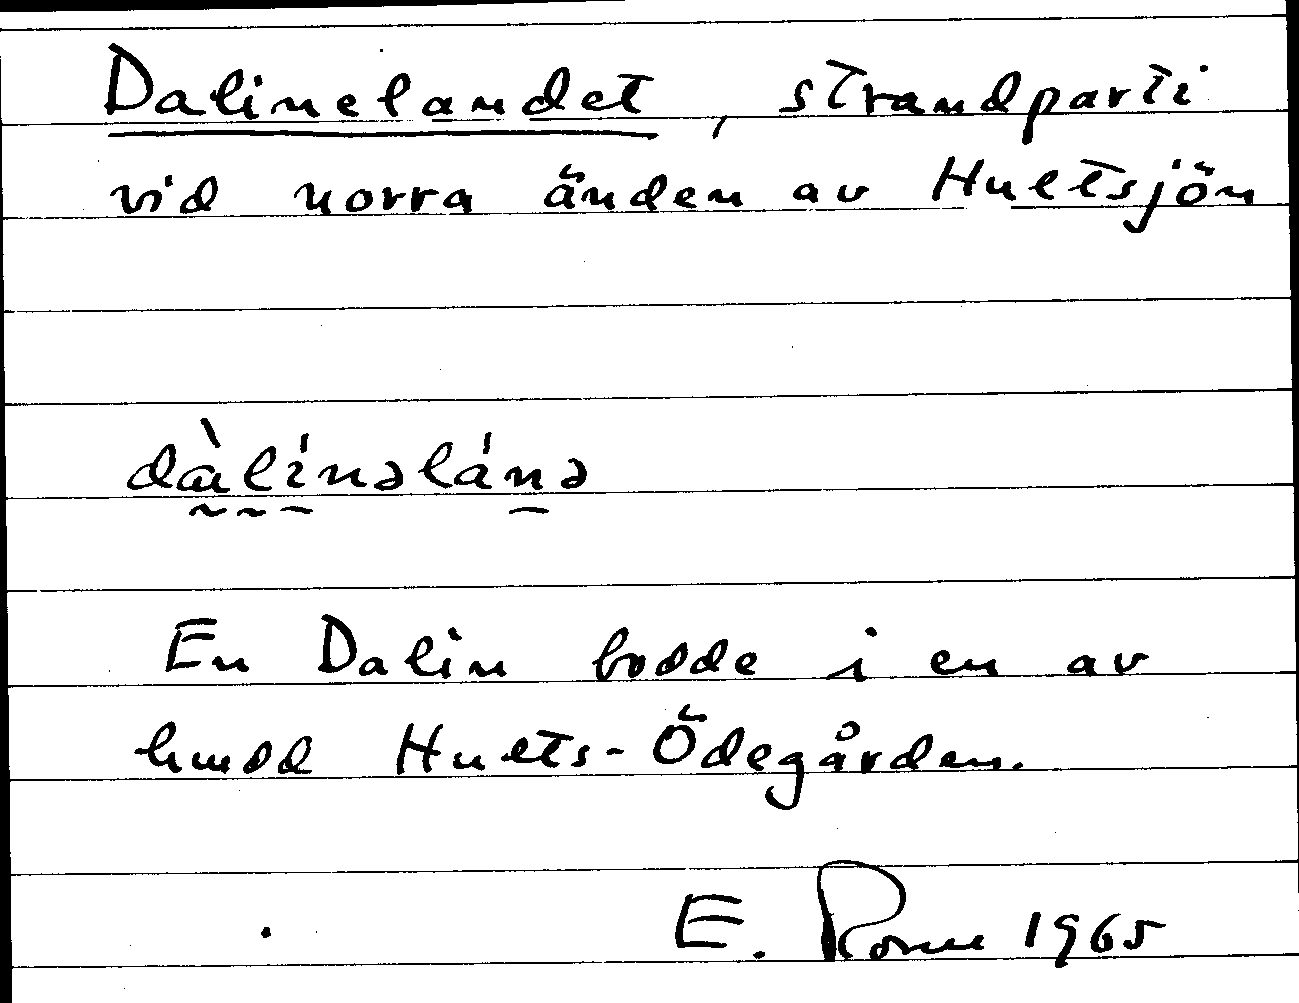 Dalinelandet, strandparti
vid norra änden av Hultsjön
dàlínəlánə
En Dalin bodde i en av
hmdd Hults-Ödegården.
E. 1965